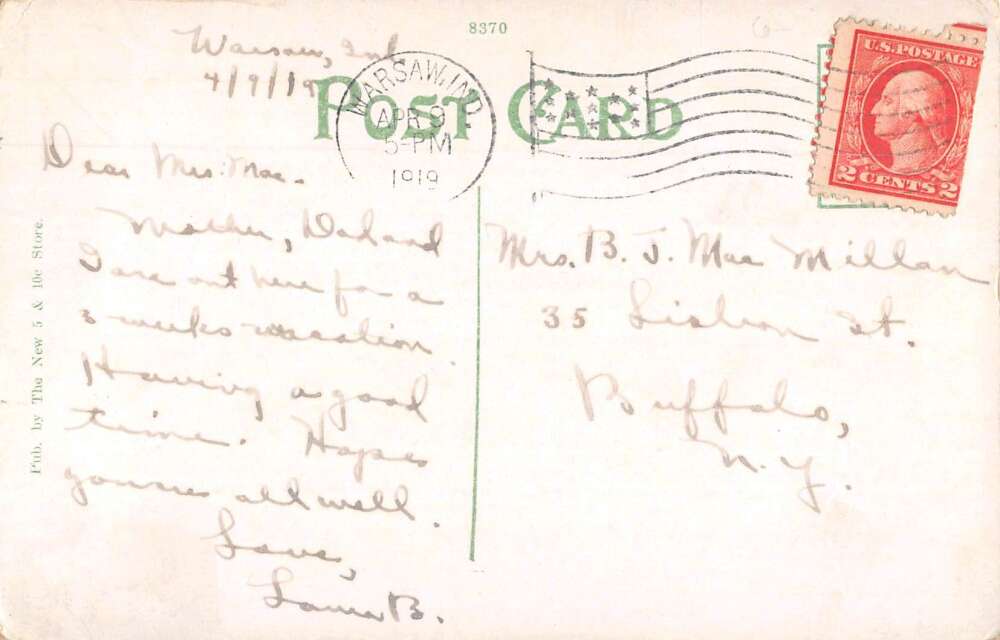 8370
Warsaw, Ind
4/9/19
POST CARD
WARSAW, IND.
APR 9
5-PM
1919
U.S. POSTAGE
2 CENTS 2
Dear Mrs. Mac-
Mother, Dad and
I are out here for a
3 weeks vacation.
Having a good
time. Hope
you all well.
Love,
B.
Mrs. B. J. Mac Millan
35 Lisbon St.
Buffalo,
N.Y.
Pub. by The New 5 & 10c Store.